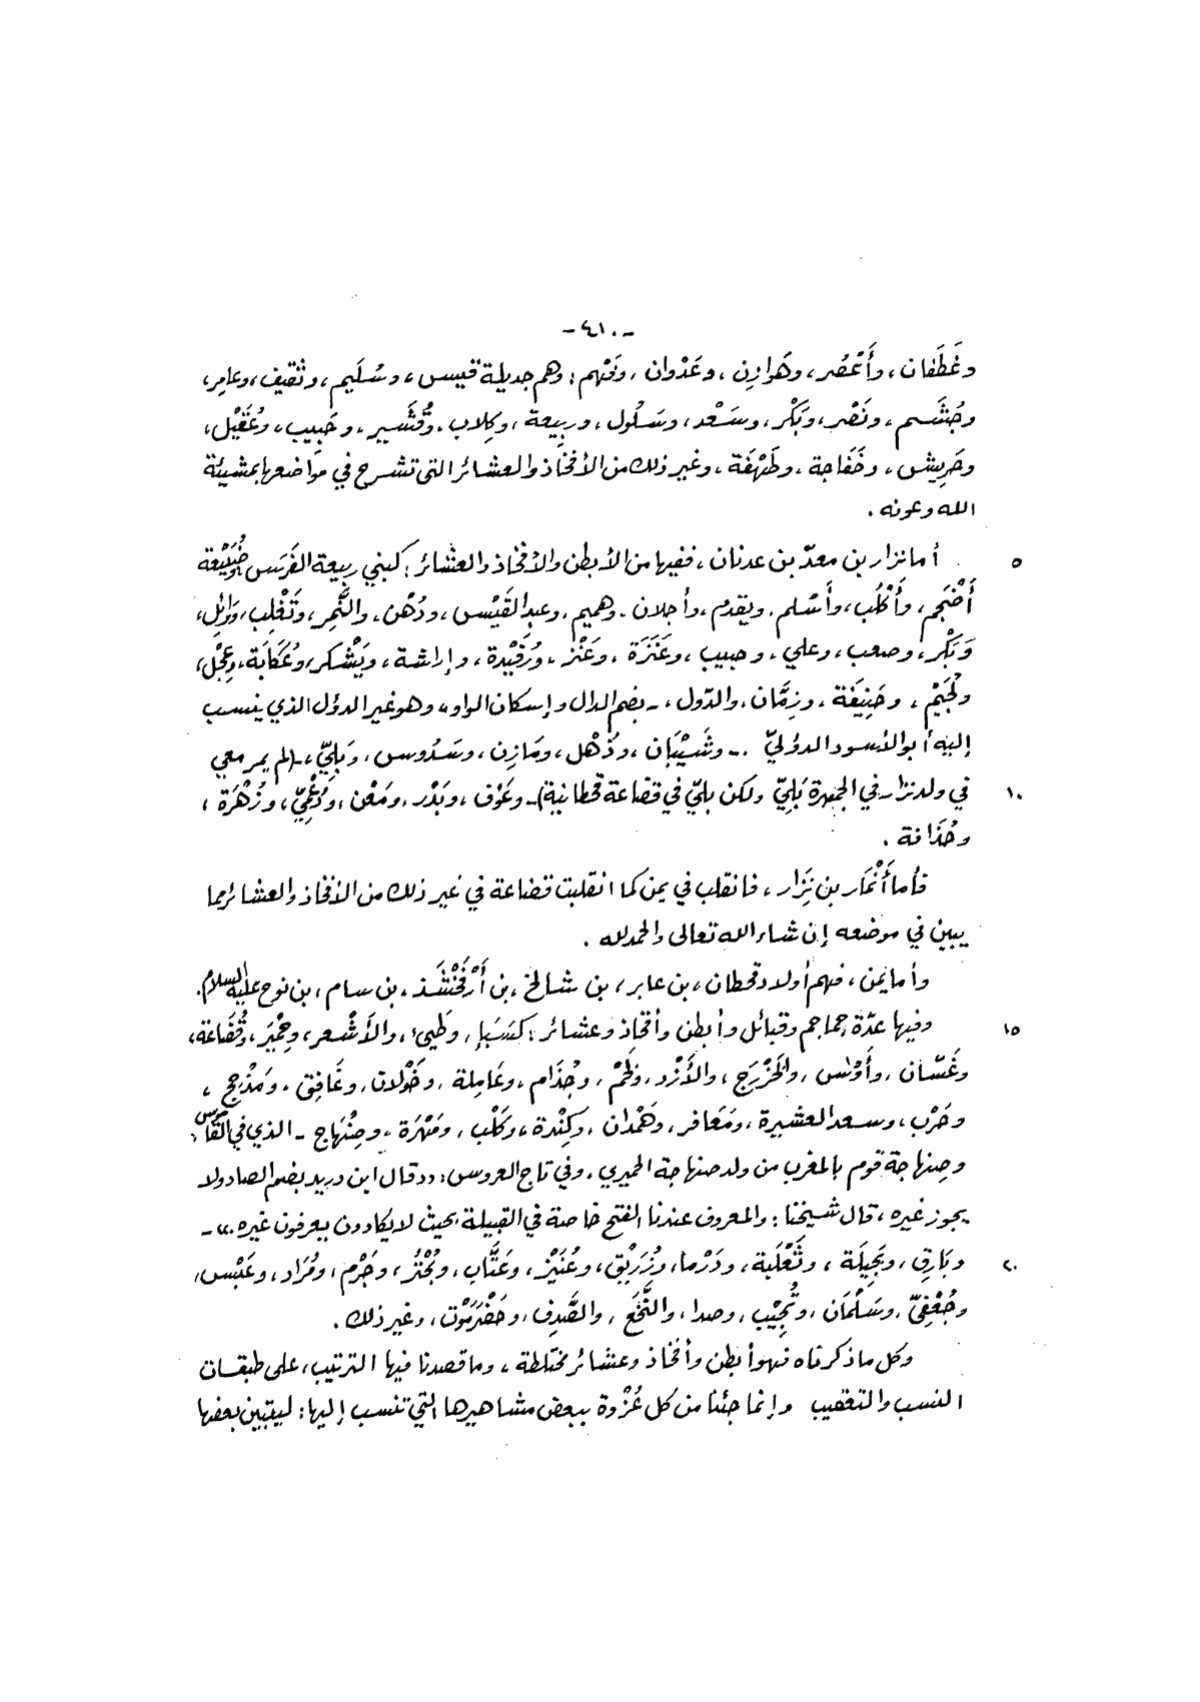 -٤١٠-
وغَطَفان، وأَعْصُر، وهَوازِن، وعَدْوان، وفَهْم: وهم جديلة قيس، وسُلَيم، وثقيف، وعامِر،
وجُشَم، ونَصْر، وبَكْر، وسَعْد، وسَلُول، وربيعة، وكِلاب، وقُشَير، وحَبِيب، وعُقَيْل،
وحَرِيش، وخَفَاجة، وطَهْفَة، وغير ذلك من الأفخاذ والعشائر التي تشرح في مواضعها بمشيئة
الله وعونه.
٥ أما نزار بن معدّ بن عدنان، ففيها من الأبطن والأفخاذ والعشائر: كبني ربيعة الفَرَس، وضُبَيْعة
أَضْجَم، وأَكْلُب، وأَسْلم، ويقدم، وأجلان، وهميم، وعبد القَيْس، ودُهْن، والنَّمِر، وتَغْلِب، ووَائِل،
وبَكْر، وصعب، وعلي، وحبيب، وعَنَزَة، وعَنْز، ورُفَيْدة، وإراشة، ويَشْكر، وعُكَابَة، وعِجْل،
ولُجَيْم، وحَنِيفَة، وزِمَّان، والدّول، - بضم الدال وإسكان الواو، وهو غير الدؤل الذي ينسب
إليه أبو الأسود الدؤليّ - وشَيْبَان، وذُهْل، ومَازِن، وسَدُوس، وبَلِيّ، - (لم يمر معي
١٠ في ولد نزار في الجمهرة بَلِيّ ولكن بليّ في قضاعة قحطانية) - وعَوْف، وبَدْر، ومَعْن، ودُعْمِيّ، وزُهْرَة،
وحُذَافة.
فأما أَنْمَار بن نِزَار، فانقلب في يمن كما انقلبت قضاعة في غير ذلك من الأفخاذ والعشائر مما
يبين في موضعه إن شاء الله تعالى والحمد لله.
وأما يمن، فهم أولاد قحطان، بن عابر، بن شالخ، بن أَرْفَخْشَذ، بن سام، بن نوح عليه السلام.
١٥ وفيها عدّة جماجم وقبائل وأبطن وأفخاذ وعشائر: كسَبَإ، وطَيئ، والأَشْعر، وحِمْيَر، وقُضَاعة،
وغَسّان، وأَوْس، والخَزْرَج، والأَزْد، ولَخْم، وجُذَام، وعَامِلة، وخَوْلان، وغَافِق، ومَذْحِج،
وحَرْب، وسعد العشيرة، ومَعَافر، وهَمْدان، وكِنْدة، وكَلْب، ومَهْرَة، وصِنْهَاج - الذي في القاموس:
وصِنهاجة قوم بالمغرب من ولد صنهاجة الحميري. وفي تاج العروس: «قال ابن دريد بضم الصاد ولا
يجوز غيره، قال شيخنا: والمعروف عندنا الفتح خاصة في القبيلة بحيث لا يكادون يعرفون غيره.» -
٢٠ وبَارِق، وبَجِيلَة، وثَعْلَبة، ودَرْما، وزُرَيْق، وعُنَيْز، وعَتَّاب، وبُحْتُر، وجَرْم، ومُرَاد، وعَبْس،
وجُعْفِيّ، وسَلْمَان، وتُجِيْب، وصدا، والنَّخَع، والصَّدِف، وحَضْرَمَوْت، وغير ذلك.
وكل ما ذكرناه فهو أبطن وأفخاذ وعشائر مختلطة، وما قصدنا فيها الترتيب، على طبقات
النسب والتعقيب وإنما جئنا من كل عُزْوة ببعض مشاهيرها التي تنسب إليها: ليتبين بعضها